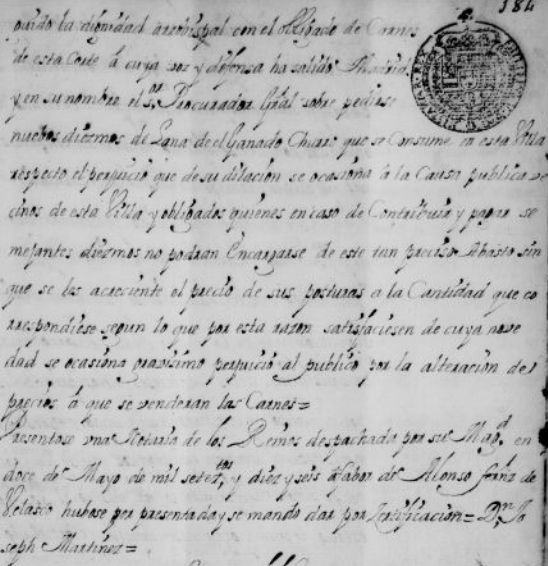 184
guido la dignidad arzobispal con el obligado de Carnes
de esta Corte á cuya voz y defensa ha salido Madrid
y en su nombre el s.or Procurador Gral sobre pedirse
nuebos diezmos de Lana de el Ganado Churro que se Consume en esta Villa
respecto el perjuicio que de su dilacion se ocasiona á la Causa publica ve
cinos de esta Villa y obligados quienes en caso de Contribuir y pagar se
mejantes diezmos no podran Encargarse de este tan preciso Abasto sin
que se les acreciente el precio de sus posturas a la Cantidad que co
rrespondiese segun lo que por esta razon satisfaciesen de cuya nove
dad se ocasiona gravisimo perjuicio al publico por la alteracion de
precios á que se venderan las Carnes=
Presentose vna Notaria de los Reinos despachada por su Mag.d en
doce de Mayo de mil setez.tos y diez y seis á fabor de Alonso fernz de
Velasco hubose por presentada y se mando dar por Zertificacion= D.n Jo
seph Martinez=